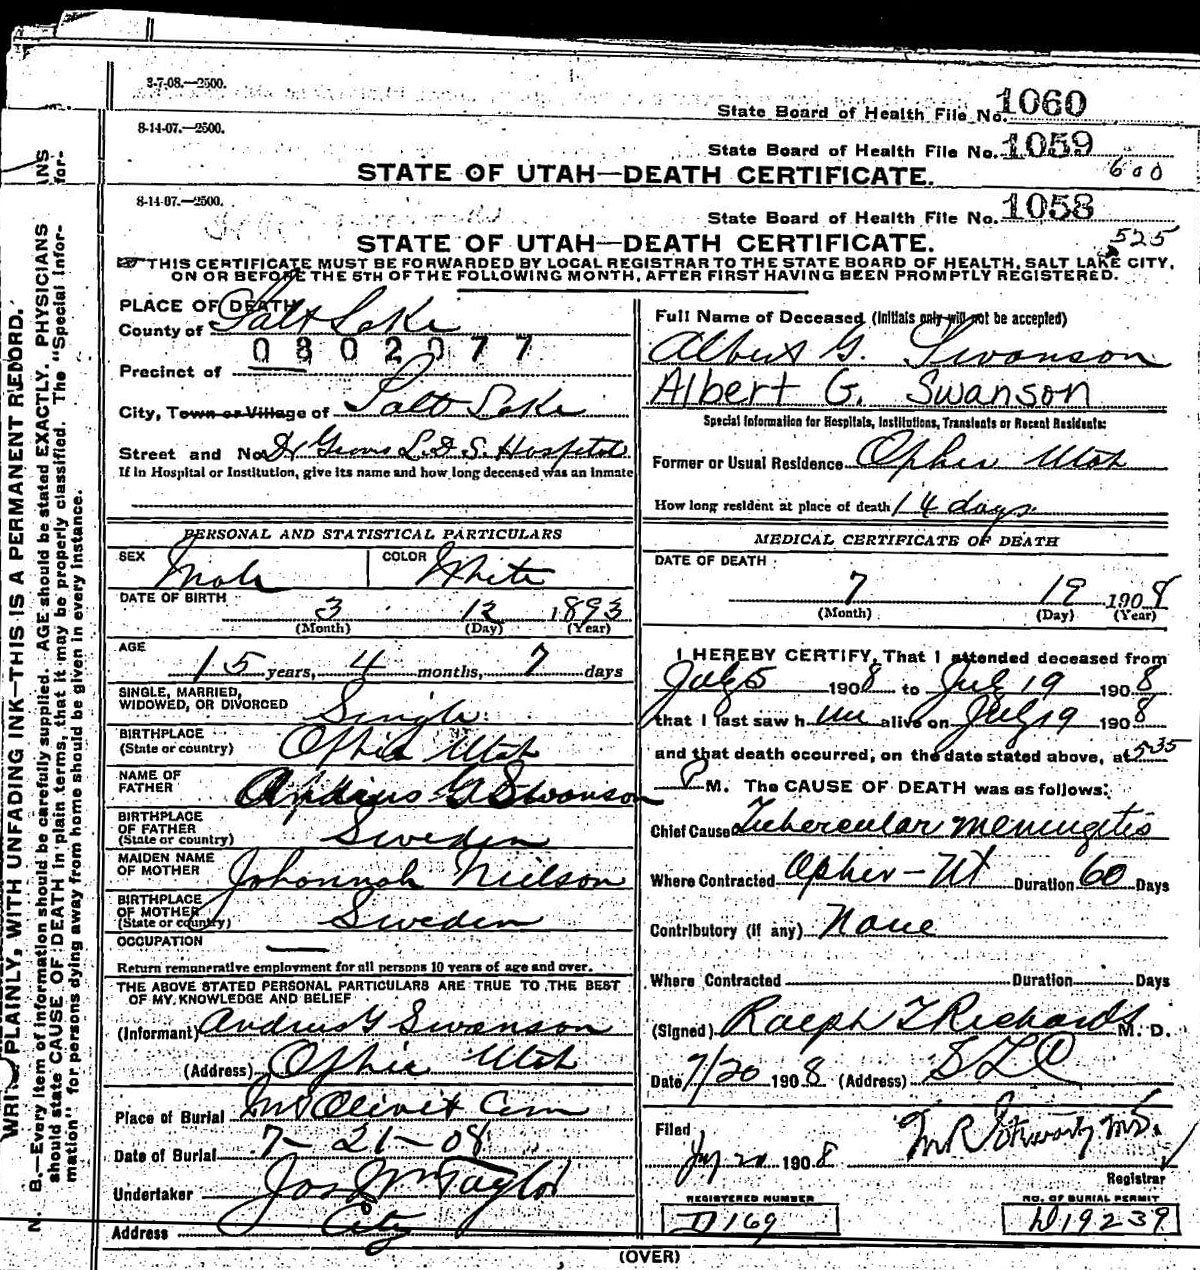 3-7-08.—2500.
State Board of Health File No. 1060
8-14-07.—2500.
State Board of Health File No. 1059
STATE OF UTAH—DEATH CERTIFICATE.
600
8-14-07.—2500.
State Board of Health File No. 1058
STATE OF UTAH—DEATH CERTIFICATE.
525
THIS CERTIFICATE MUST BE FORWARDED BY LOCAL REGISTRAR TO THE STATE BOARD OF HEALTH, SALT LAKE CITY,
ON OR BEFORE THE 5TH OF THE FOLLOWING MONTH, AFTER FIRST HAVING BEEN PROMPTLY REGISTERED.
PLACE OF DEATH
County of Salt Lake
0802077
Precinct of
City, Town or Village of Salt Lake
Street and No. Dr Groves L.D.S. Hospital
If in Hospital or Institution, give its name and how long deceased was an inmate
PERSONAL AND STATISTICAL PARTICULARS
SEX Male COLOR White
DATE OF BIRTH 3 12 1893
(Month) (Day) (Year)
AGE
15 years, 4 months, 7 days
SINGLE, MARRIED,
WIDOWED, OR DIVORCED Single
BIRTHPLACE
(State or country) Ophir Utah
NAME OF
FATHER Andrius G Swanson
BIRTHPLACE
OF FATHER
(State or country) Sweden
MAIDEN NAME
OF MOTHER Johannah Nielson
BIRTHPLACE
OF MOTHER
(State or country) Sweden
OCCUPATION
Return remunerative employment for all persons 10 years of age and over.
THE ABOVE STATED PERSONAL PARTICULARS ARE TRUE TO THE BEST
OF MY KNOWLEDGE AND BELIEF
(Informant) Andrius G Swanson
(Address) Ophir Utah
Place of Burial Mt Olivet Cem
Date of Burial 7-21-08
Undertaker Jos Wm Taylor
Address City
Full Name of Deceased (Initials only will not be accepted)
Albert G. Swanson
Albert G. Swanson
Special Information for Hospitals, Institutions, Transients or Recent Residents:
Former or Usual Residence Ophir Utah
How long resident at place of death 14 days
MEDICAL CERTIFICATE OF DEATH
DATE OF DEATH
7 19 1908
(Month) (Day) (Year)
I HEREBY CERTIFY, That I attended deceased from
July 5 1908 to July 19 1908
that I last saw him alive on July 19 1908
and that death occurred, on the date stated above, at 5:35
P M. The CAUSE OF DEATH was as follows:
Chief Cause Tubercular meningitis
Where Contracted Ophir-Ut Duration 60 Days
Contributory (if any) None
Where Contracted Duration Days
(Signed) Ralph T Richards M. D.
Date 7/20 1908 (Address) SLC
Filed
July 20 1908 M R M.D.
Registrar
REGISTERED NUMBER
D169
NO. OF BURIAL PERMIT
D19239
(OVER)
WRITE PLAINLY, WITH UNFADING INK—THIS IS A PERMANENT RECORD.
N. B.—Every item of information should be carefully supplied. AGE should be stated EXACTLY. PHYSICIANS
should state CAUSE OF DEATH in plain terms, that it may be properly classified. The "Special Infor-
mation" for persons dying away from home should be given in every instance.